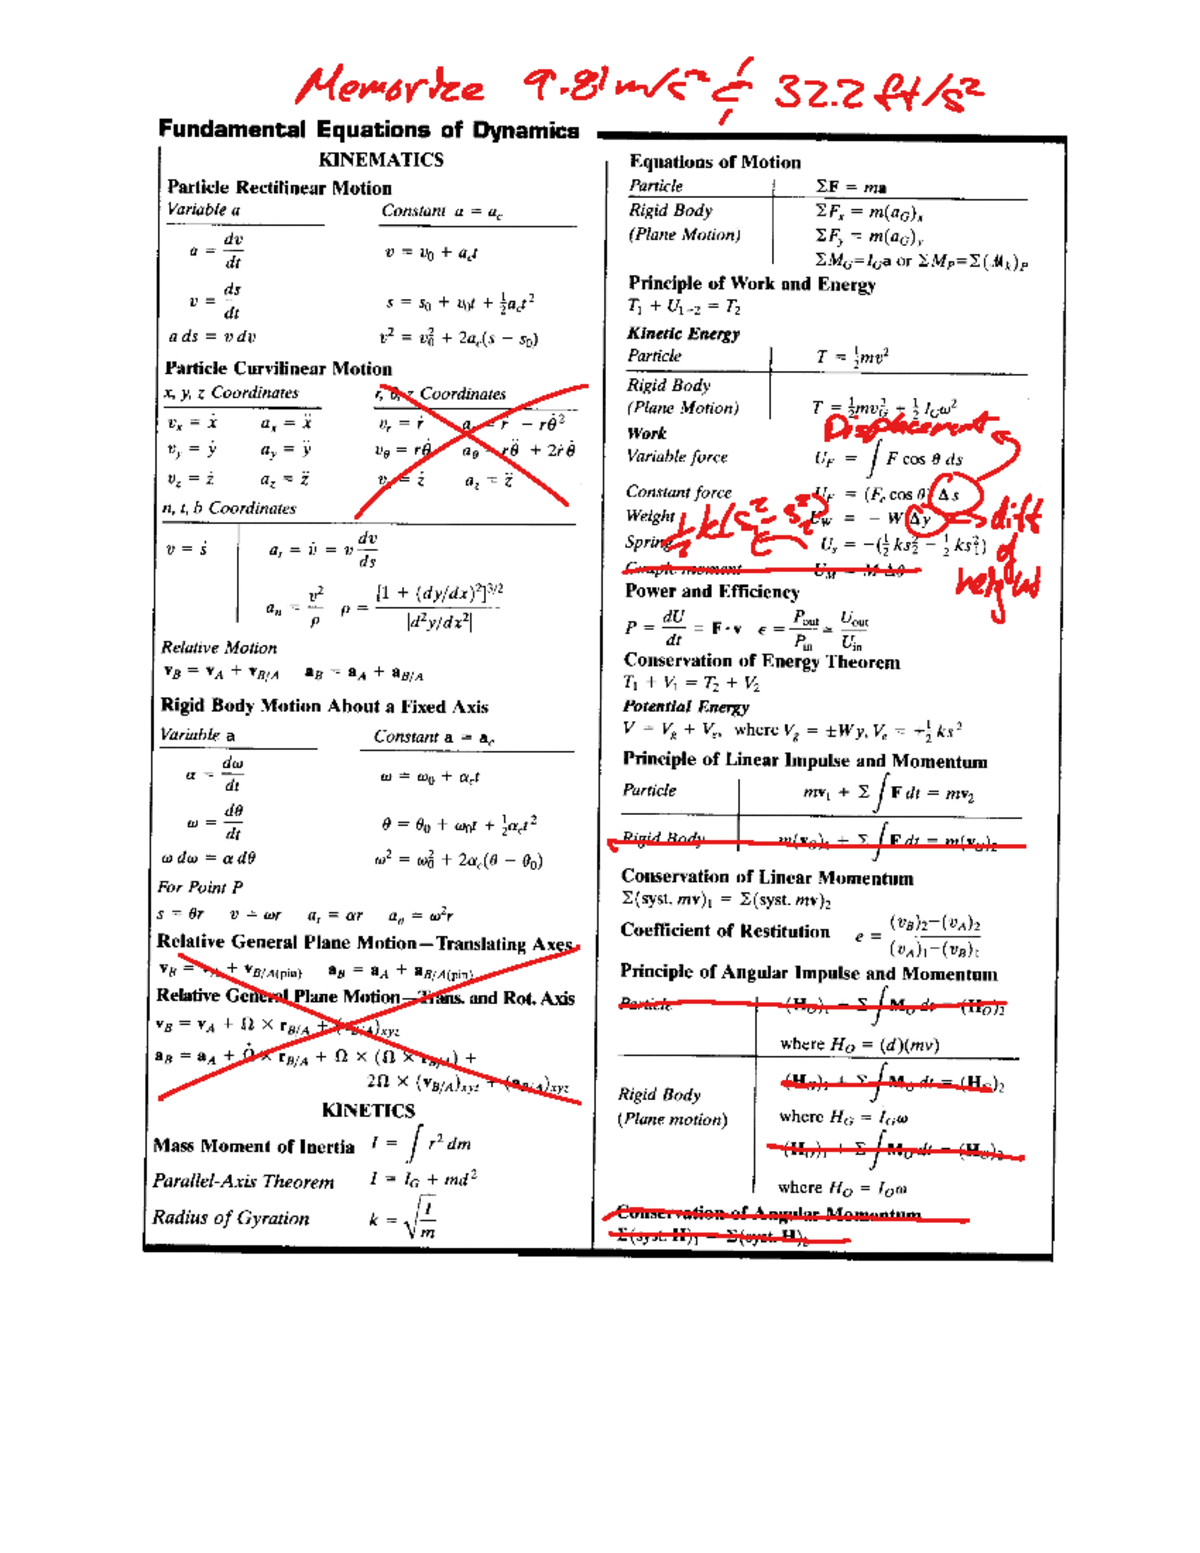 Memorize 9.81 m/s² & 32.2 ft/s²
Fundamental Equations of Dynamics
KINEMATICS
Particle Rectilinear Motion
Variable a    Constant a = a_c
a = dv/dt    v = v₀ + a_c t
v = ds/dt    s = s₀ + v₀t + ½a_c t²
a ds = v dv    v² = v₀² + 2a_c(s − s₀)
Particle Curvilinear Motion
x, y, z Coordinates    r, θ, z Coordinates
v_x = ẋ    a_x = ẍ    v_r = ṙ    a_r = r̈ − rθ̇²
v_y = ẏ    a_y = ÿ    v_θ = rθ̇    a_θ = rθ̈ + 2ṙθ̇
v_z = ż    a_z = z̈    v_z = ż    a_z = z̈
n, t, b Coordinates
v = ṡ    a_t = v̇ = v dv/ds
a_n = v²/ρ    ρ = [1 + (dy/dx)²]^3/2 / |d²y/dx²|
Relative Motion
v_B = v_A + v_B/A    a_B = a_A + a_B/A
Rigid Body Motion About a Fixed Axis
Variable a    Constant a = a_c
α = dω/dt    ω = ω₀ + α_c t
ω = dθ/dt    θ = θ₀ + ω₀t + ½α_c t²
ω dω = α dθ    ω² = ω₀² + 2α_c(θ − θ₀)
For Point P
s = θr    v = ωr    a_t = αr    a_n = ω²r
Relative General Plane Motion—Translating Axes
v_B = v_A + v_B/A(pin)    a_B = a_A + a_B/A(pin)
Relative General Plane Motion—Trans. and Rot. Axis
v_B = v_A + Ω × r_B/A + (v_B/A)_xyz
a_B = a_A + Ω̇ × r_B/A + Ω × (Ω × r_B/A) +
2Ω × (v_B/A)_xyz + (a_B/A)_xyz
KINETICS
Mass Moment of Inertia    I = ∫ r² dm
Parallel-Axis Theorem    I = I_G + md²
Radius of Gyration    k = √(I/m)
Equations of Motion
Particle    ΣF = ma
Rigid Body    ΣF_x = m(a_G)_x
(Plane Motion)    ΣF_y = m(a_G)_y
ΣM_G = I_G a or ΣM_P = Σ(ℳ_k)_P
Principle of Work and Energy
T₁ + U₁₋₂ = T₂
Kinetic Energy
Particle    T = ½mv²
Rigid Body
(Plane Motion)    T = ½mv_G² + ½ I_G ω²
Displacement
Work
Variable force    U_F = ∫ F cos θ ds
Constant force    U_F = (F_c cos θ) Δs
Weight    U_W = − W Δy    diff of height
½k(s₁² − s₂²)
Spring    U_s = −(½ ks₂² − ½ ks₁²)
Couple moment    U_M = M Δθ
Power and Efficiency
P = dU/dt = F · v    ϵ = P_out/P_in = U_out/U_in
Conservation of Energy Theorem
T₁ + V₁ = T₂ + V₂
Potential Energy
V = V_g + V_e, where V_g = ±Wy, V_e = +½ ks²
Principle of Linear Impulse and Momentum
Particle    mv₁ + Σ ∫ F dt = mv₂
Rigid Body    m(v_G)₁ + Σ ∫ F dt = m(v_G)₂
Conservation of Linear Momentum
Σ(syst. mv)₁ = Σ(syst. mv)₂
Coefficient of Restitution    e = (v_B)₂−(v_A)₂ / (v_A)₁−(v_B)₁
Principle of Angular Impulse and Momentum
Particle    (H_O)₁ + Σ ∫ M_O dt = (H_O)₂
where H_O = (d)(mv)
Rigid Body    (H_G)₁ + Σ ∫ M_G dt = (H_G)₂
(Plane motion)    where H_G = I_G ω
(H_O)₁ + Σ ∫ M_O dt = (H_O)₂
where H_O = I_O ω
Conservation of Angular Momentum
Σ(syst. H)₁ = Σ(syst. H)₂